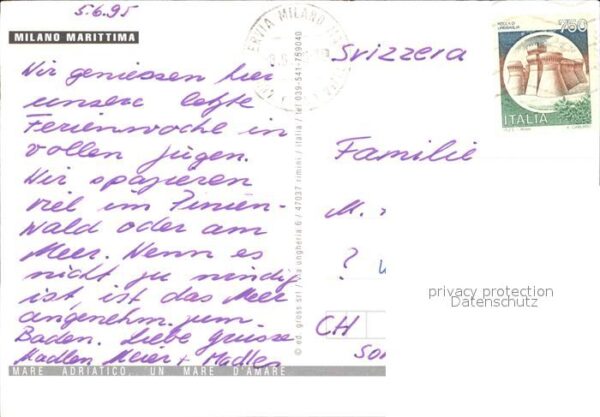 5.6.95
MILANO MARITTIMA
Wir geniessen hier
unsere letzte
Ferienwoche in
vollen zügen.
Wir spazieren
viel im Pinien-
wald oder am
Meer. Wenn es
nicht zu windig
ist ist das Meer
angenehm zum
Baden. Liebe Grüsse
Madlen Meier + Madlen
MARE ADRIATICO... UN MARE D'AMARE
© ed. gross srl / via ungheria 6 / 47037 rimini / italia / tel 039-541-759040
CERVIA MILANO MARITTIMA
750
ITALIA
Svizzera
Familie
M.
?
CH
privacy protection
Datenschutz